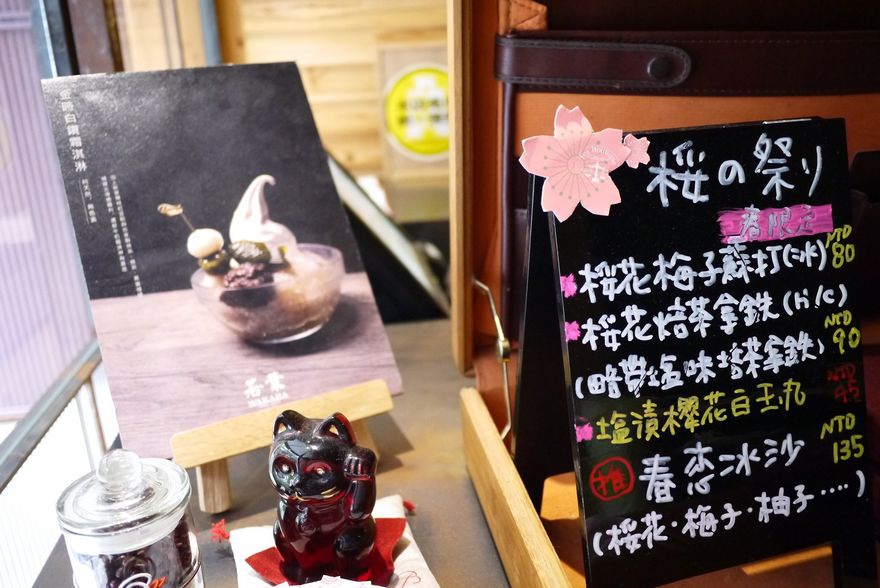 金時白鑽霜淇淋
若葉
WAKABA
桜の祭り
春限定
NTD
80
桜花梅子蘇打(冰)
桜花焙茶拿鉄(h/c)
NTD
90
(略帶塩味焙茶拿鉄)
NTD
45
塩漬櫻花白玉丸
NTD
135
推 春恋冰沙
(桜花·梅子·柚子....)